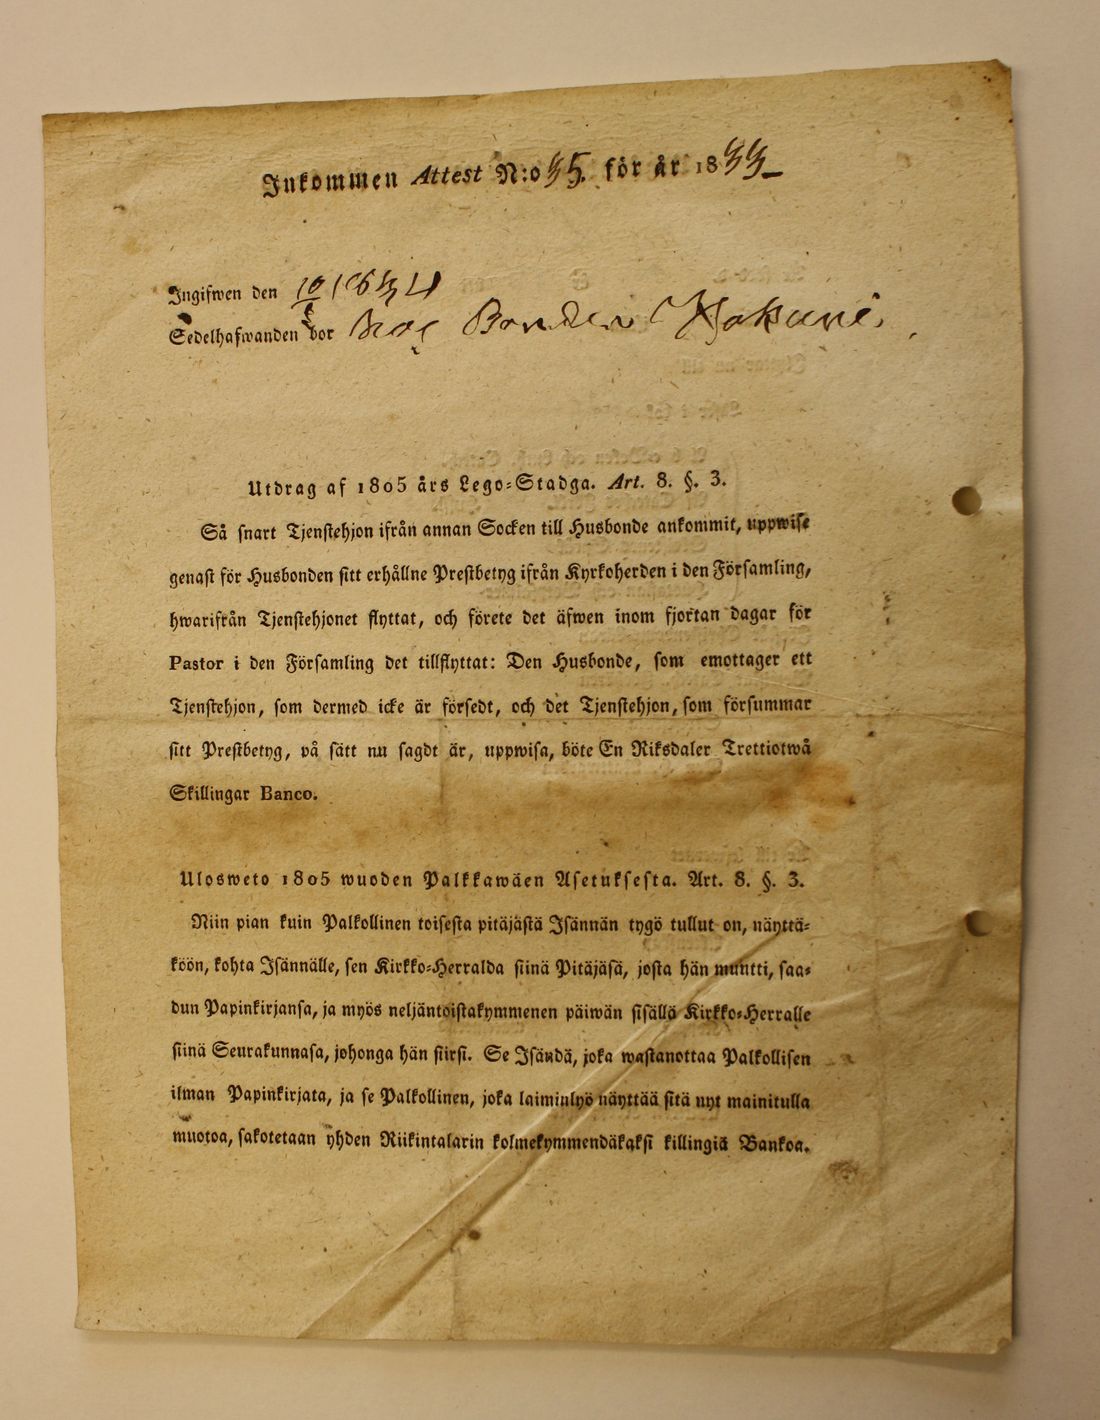 Inkommen Attest N:o 35. för år 1833
Ingifwen den 10 1834
Sedelhafwanden bor hos Bonden
Utdrag af 1805 års Lego-Stadga. Art. 8. §. 3.
Så snart Tjenstehjon ifrån annan Socken till Husbonde ankommit, uppwise
genast för Husbonden sitt erhållne Prestbetyg ifrån Kyrkoherden i den Församling,
hwarifrån Tjenstehjonet flyttat, och förete det äfwen inom fjortan dagar för
Pastor i den Församling det tillflyttat: Den Husbonde, som emottager ett
Tjenstehjon, som dermed icke är försedt, och det Tjenstehjon, som försummar
sitt Prestbetyg, på sätt nu sagdt är, uppwisa, böte En Riksdaler Trettiotwå
Skillingar Banco.
Ulosweto 1805 wuoden Palkkawäen Asetuksesta. Art. 8. §. 3.
Niin pian kuin Palkollinen toisesta pitäjästä Isännän tygö tullut on, näyttä-
köön, kohta Isännälle, sen Kirkko-Herralda siinä Pitäjäsä, josta hän muutti, saa-
dun Papinkirjansa, ja myös neljäntoistakymmenen päiwän sisällä Kirkko-Herralle
siinä Seurakunnasa, johonga hän siirsi. Se Isändä, joka wastanottaa Palkollisen
ilman Papinkirjata, ja se Palkollinen, joka laiminlyö näyttää sitä nyt mainitulla
muotoa, sakotetaan yhden Riikintalarin kolmekymmendäkaksi killingiä Bankoa.